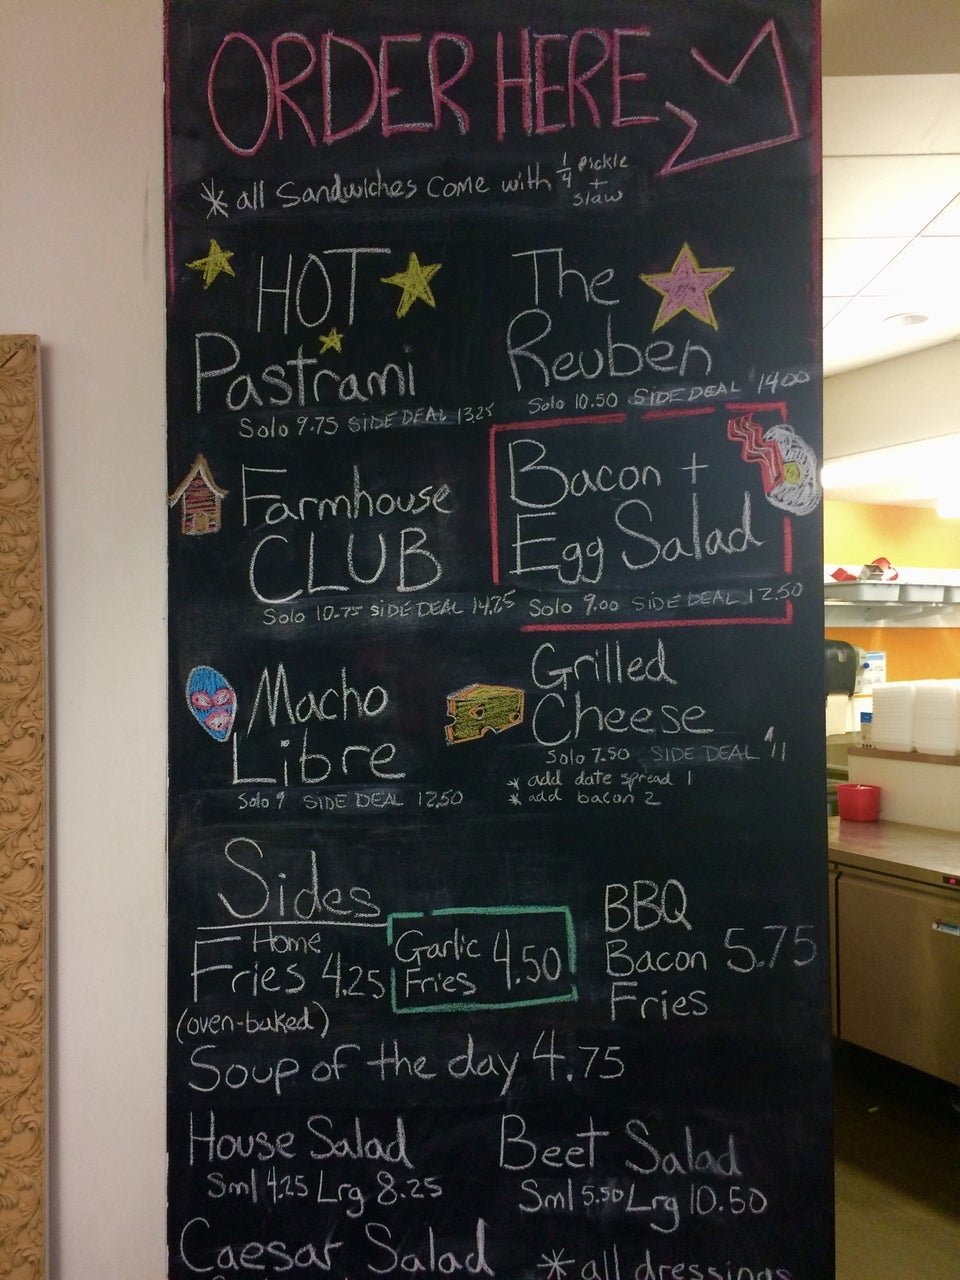 ORDER HERE
* all sandwiches come with 1/4 pickle
+
slaw
HOT
Pastrami
Solo 9.75 SIDE DEAL 13.25
The
Reuben
Solo 10.50 SIDE DEAL 14.00
Farmhouse
CLUB
Solo 10.75 SIDE DEAL 14.25
Bacon +
Egg Salad
Solo 9.00 SIDE DEAL 12.50
Macho
Libre
Solo 9 SIDE DEAL 12.50
Grilled
Cheese
Solo 7.50 SIDE DEAL 11
* add date spread 1
* add bacon 2
Sides
Home
Fries 4.25
(oven-baked)
Garlic
Fries 4.50
BBQ
Bacon 5.75
Fries
Soup of the day 4.75
House Salad
Sml 4.25 Lrg 8.25
Beet Salad
Sml 5.50 Lrg 10.50
Caesar Salad
* all dressings